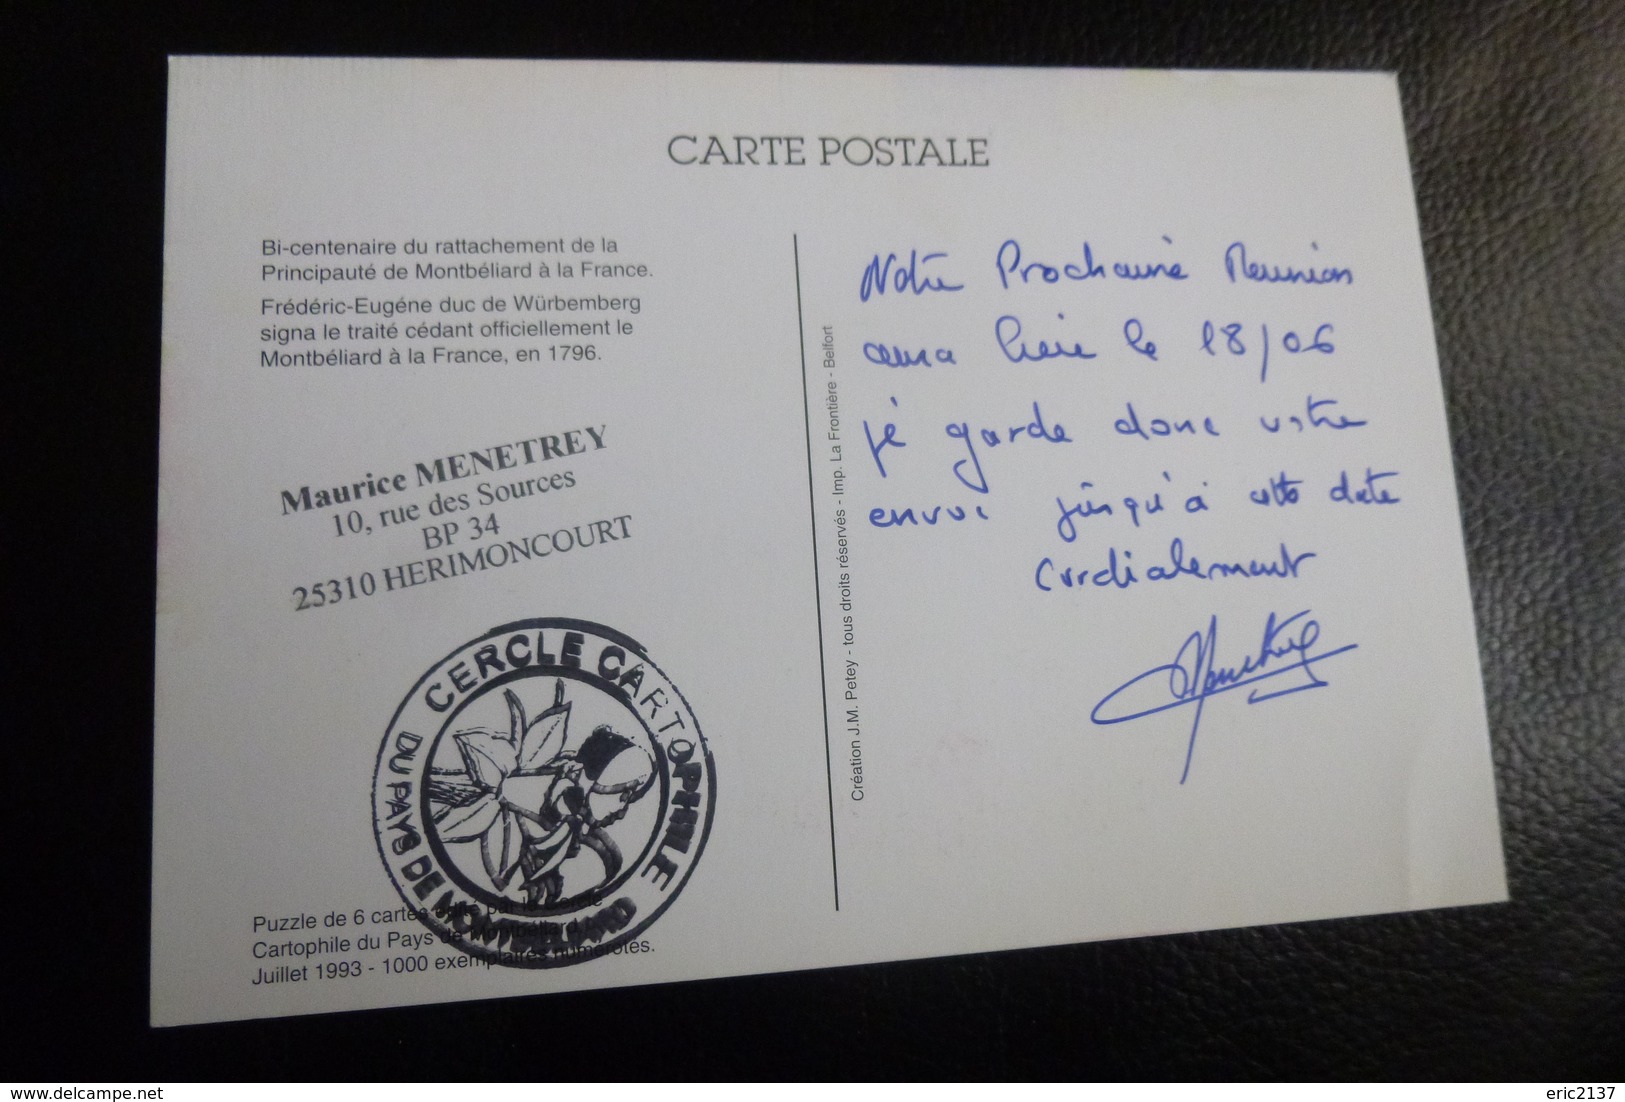 CARTE POSTALE
Bi-centenaire du rattachement de la
Principauté de Montbéliard à la France.
Frédéric-Eugéne duc de Würbemberg
signa le traité cédant officiellement le
Montbéliard à la France, en 1796.
Maurice MENETREY
10, rue des Sources
BP 34
25310 HERIMONCOURT
CERCLE CARTOPHILE
DU PAYS DE MONTBELIARD
Puzzle de 6 cartes édité par le Cercle
Cartophile du Pays de Montbéliard
Juillet 1993 - 1000 exemplaires numérotés.
Création J.M. Petey - tous droits réservés - Imp. La Frontière - Belfort
Notre Prochaine Reunion
aura lieu le 18/06
je garde donc votre
envoi jusqu'à cette date
Cordialement
delcampe.net
eric2137